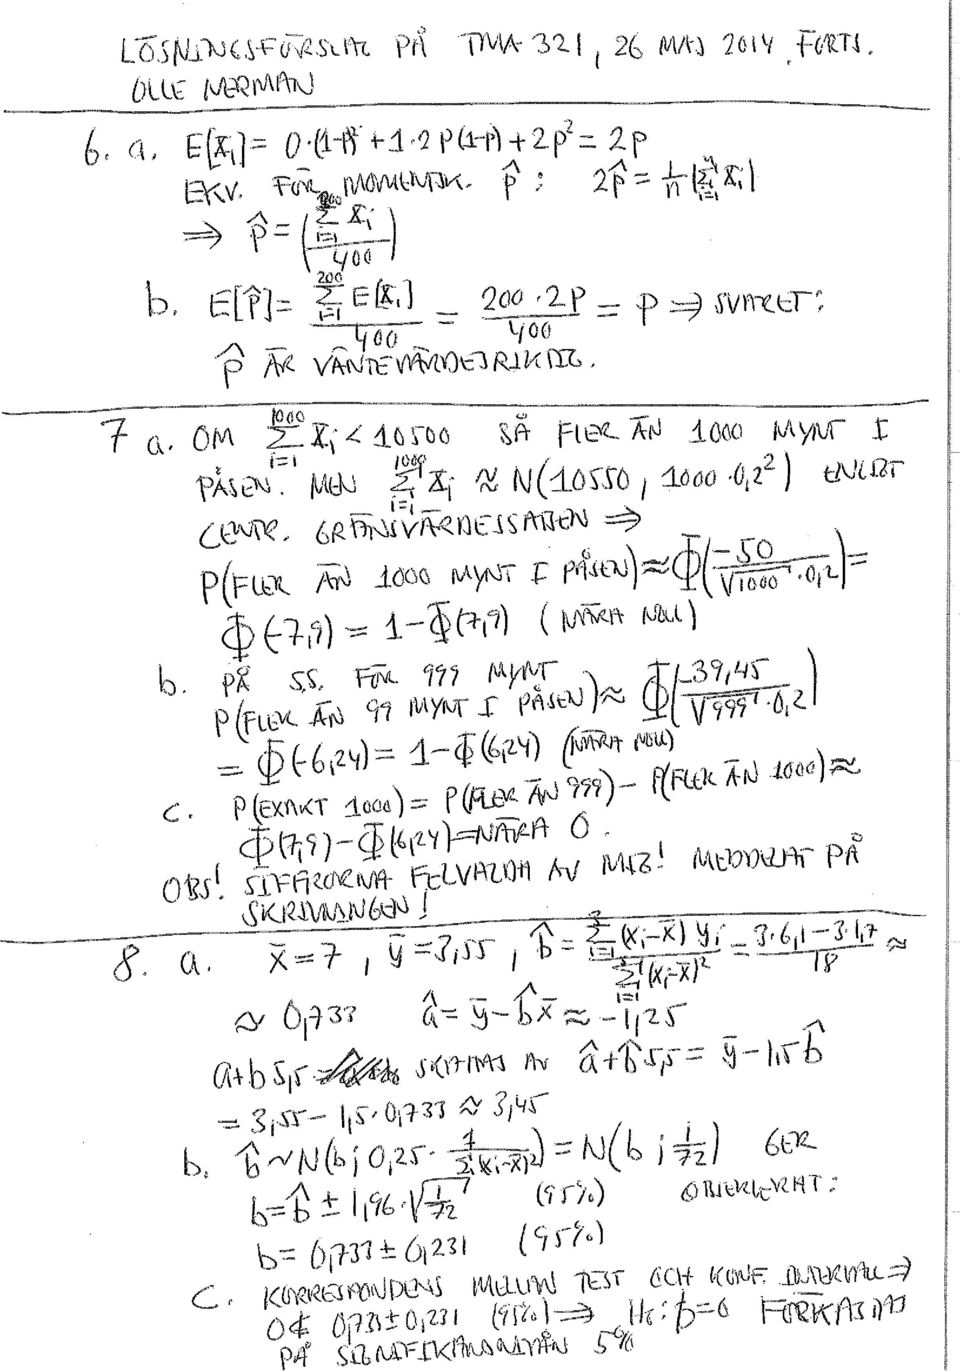 LÖSNINGSFÖRSLAG PÅ TMA 321, 26 MAJ 2014, FORTS.
OLLE NERMAN
6. a. E[X_i] = 0·(1-p)² + 1·2p(1-p) + 2p² = 2p
EKV. FÖR MOMENTSK. p̂ : 2p̂ = 1/n (∑_{i=1}^{n} X_i)
⇒ p̂ = (∑_{i=1}^{200} X_i / 400)
b. E[p̂] = ∑_{i=1}^{200} E[X_i] / 400 = 200·2p / 400 = p ⇒ SVARET:
p̂ ÄR VÄNTEVÄRDESRIKTIG.
7 a. OM ∑_{i=1}^{1000} X_i < 10500 SÅ FLER ÄN 1000 MYNT I
PÅSEN. MEN ∑_{i=1}^{1000} X_i ≈ N(10550, 1000·0,2²) ENLIGT
CENTR. GRÄNSVÄRDESSATSEN ⇒
P(FLER ÄN 1000 MYNT I PÅSEN) ≈ Φ(-50 / √1000·0,2) =
Φ(-7,9) = 1-Φ(7,9) (NÄRA NOLL)
b. PÅ SS. FÖR 999 MYNT
P(FLER ÄN 99 MYNT I PÅSEN) ≈ Φ(-39,45 / √999·0,2)
= Φ(-6,24) = 1-Φ(6,24) (NÄRA NOLL)
c. P(EXAKT 1000) = P(FLER ÄN 999) - P(FLER ÄN 1000) ≈
Φ(7,9) - Φ(6,24) = NÄRA 0.
OBS! SIFFRORNA FELVALDA AV MIG! MEDDELAT PÅ
SKRIVNINGEN!
8. a. x̄ = 7, ȳ = 3,55, b̂ = ∑_{i=1}^{3} (x_i-x̄) y_i / ∑_{i=1}^{3} (x_i-x̄)² = 3·6,1-3·1,7 / 18 ≈
≈ 0,733 â = ȳ - b̂x̄ ≈ -1,25
a+b 5,5 SKATTAS AV â+b̂ 5,5 = ȳ - 1,5 b̂
= 3,55 - 1,5·0,733 ≈ 3,45
b. b̂ ~ N(b; 0,25 · 1/∑(x_i-x̄)²) = N(b; 1/72) GER
b = b̂ ± 1,96·√1/72 (95%) OBSERVERAT:
b = 0,733 ± 0,231 (95%)
c. KORRESPONDENS MELLAN TEST OCH KONF. INTERVALL ⇒
0 ∉ 0,733 ± 0,231 (95%) ⇒ H₀: b=0 FÖRKASTAS
PÅ SIGNIFIKANSNIVÅN 5%